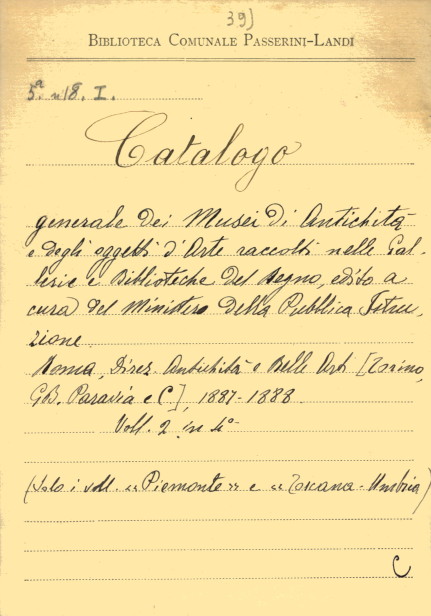 39)
BIBLIOTECA COMUNALE PASSERINI-LANDI
5ª. n 18. I.
Catalogo
generale dei Musei di Antichità
e degli oggetti d'Arte raccolti nelle Gal-
lerie e Biblioteche del Regno, edito a
cura del Ministero della Pubblica Istru-
zione.
Roma, Direz. Antichità e Belle Arti [Torino,
G.B. Paravia e C.], 1887-1888.
Voll. 2 in 4°
(Solo i voll. « Piemonte » e « Toscana - Umbria)
C